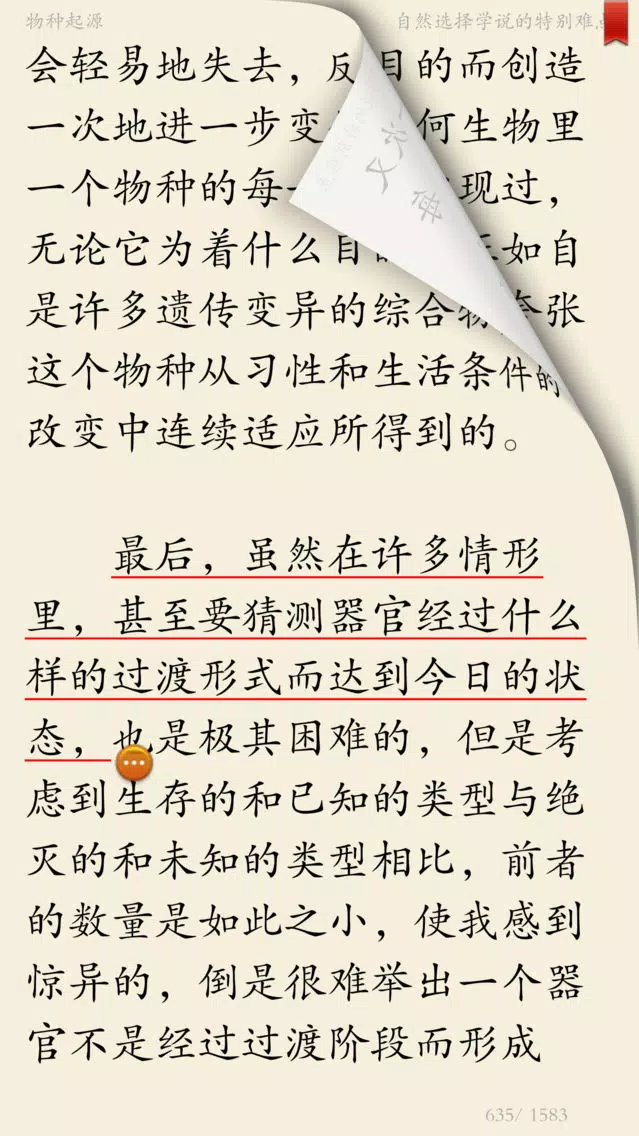 物种起源
自然选择学说的特别难
会轻易地失去，反目的而创造
一次地进一步变 何生物里
一个物种的每 现过，
无论它为着什么目 如自
是许多遗传变异的综合物 夸张
这个物种从习性和生活条件的
改变中连续适应所得到的。
最后，虽然在许多情形
里，甚至要猜测器官经过什么
样的过渡形式而达到今日的状
态，也是极其困难的，但是考
虑到生存的和已知的类型与绝
灭的和未知的类型相比，前者
的数量是如此之小，使我感到
惊异的，倒是很难举出一个器
官不是经过过渡阶段而形成
635/ 1583